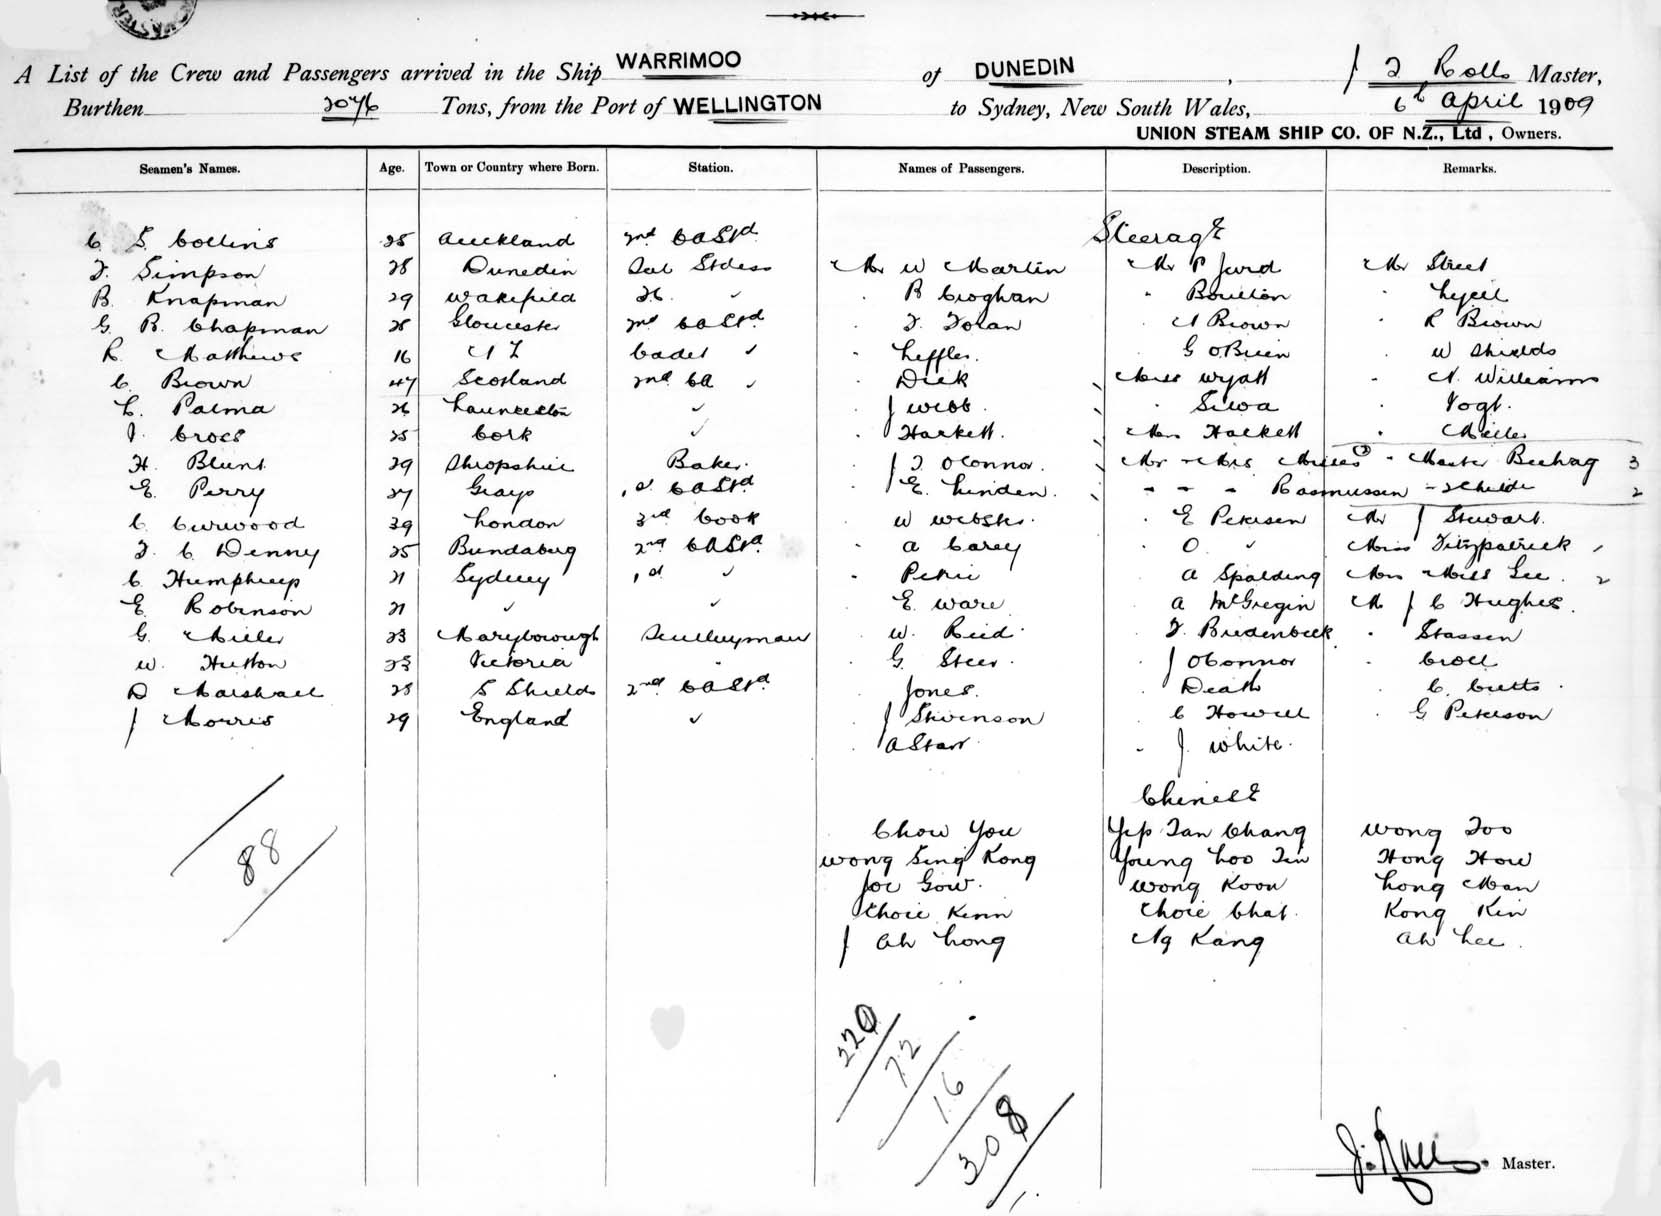 A List of the Crew and Passengers arrived in the Ship WARRIMOO of DUNEDIN, J F Rolls Master,
Burthen 2076 Tons, from the Port of WELLINGTON to Sydney, New South Wales, 6th April 1909
UNION STEAM SHIP CO. OF N.Z., Ltd, Owners.
Seamen's Names. Age. Town or Country where Born. Station. Names of Passengers. Description. Remarks.
Steerage
C S Collins 25 Auckland 2nd CaStd
F. Simpson 28 Dunedin Sal Stdess Mr W Martin Mr P Jurd Mr Street
B. Knapman 29 Wakefield R Croghan Boulton Lyell
G. R. Chapman 25 Gloucester 2nd CaStd F. Dolan N Brown R Brown
R. Matthews 16 NZ Cadet ✓ Leffler. G OBrien W Shields
C. Brown 47 Scotland 2nd Ca ✓ Dick Miss Wyatt N. Williams
L. Palma 26 Launceston ✓ J Webb. Silva Vogt.
J. Cross 25 Cork ✓ Hackett. Mrs Hackett Miller
H. Blunt 29 Shropshire Baker. J OConnor. Mr - Mrs Misses - Master Beehag 3
E. Perry 27 Grays 1st CaStd E. Linden. - - - Rasmussen - 2 Childn 2
C Curwood 39 London 3rd Cook W Webster. E Petersen Mr J Stewart.
F. C Denny 25 Bundaberg 2nd CaStd A Carey O. " Miss Fitzpatrick
C Humphreys 21 Sydney 1st " Petrie A Spalding Mrs - Miss Lee. 2
E Robinson 21 ✓ ✓ E Ware A McGregin M J C Hughes.
G. Miller 23 Maryborough Sculleyman W. Reid. F. Bredenbeck Stassen
W. Hutton 23 Victoria " G. Steer. J OConnor Croll
D Marshall 28 S Shields 2nd CaStd Jones. Death C. Cutts.
J Morris 29 England ✓ J Stevenson C Howell G Peterson
A Starr. J. White.
Chinese
Chow You Yip Tan Chang Wong Foo
Wong Sing Kong Young Loo Tin Hong How
Joe Gow. Wong Koon Long Man
Choie Kinn Choie Chat. Kong Kin
J Ah Long Ng Kang Ah Lee.
88
220
72
16
308
J. Rolls Master.